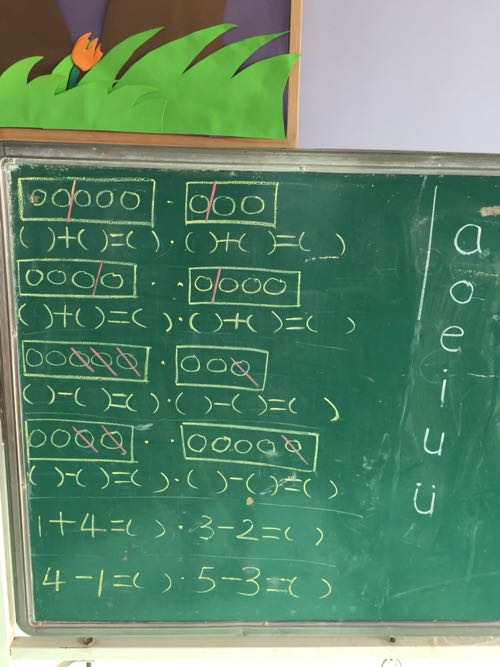 ( )+( )=( ) · ( )+( )=( )
( )+( )=( ) · ( )+( )=( )
( )-( )=( ) · ( )-( )=( )
( )-( )=( ) · ( )-( )=( )
1+4=( ) · 3-2=( )
4-1=( ) · 5-3=( )
a
o
e
i
u
ü